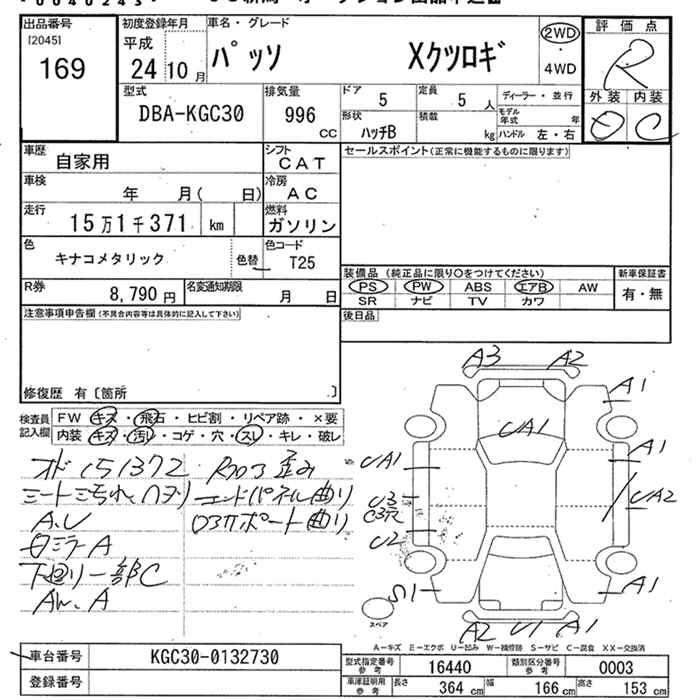 出品番号
[2045]
169
初度登録年月
平成
24 10月
車名・グレード
パッソ Xクツロギ
2WD
・
4WD
評価点
R
外装 内装
D C
型式
DBA-KGC30
排気量
996 cc
ドア
5
定員
5 人
ディーラー・並行
モデル年式 年
形状
ハッチB
積載 kg
ハンドル 左・右
車歴
自家用
シフト
CAT
セールスポイント(正常に機能するものに限ります)
車検
年 月( 日)
冷房
AC
走行
15万1千371 km
燃料
ガソリン
色
キナコメタリック
色替
色コード
T25
R券
8,790円
名変通知期限
月 日
装備品(純正品に限り○をつけてください)
PS PW ABS エアB AW
SR ナビ TV カワ
新車保証書
有・無
後日品
注意事項申告欄(不具合内容等は具体的に記入して下さい)
修復歴 有〔箇所 .〕
検査員記入欄
FW キズ・飛石・ヒビ割・リペア跡・×要
内装 キズ・汚レ・コゲ・穴・スレ・キレ・破レ
オド151372
シートシミ汚れ、ハヌリ
A.U
下廻リ一部C
AW.A
Rフロア歪み
エンドパネル曲り
ロアサポート曲り
A3 A2
A1
UA1
UA1
A1
U3
C3穴
UA2
U2
S1
A1
A2 U1 A1
スペア
A-キズ E-エクボ U-凹み W-補修跡 S-サビ C-腐食 XX-交換済
車台番号
KGC30-0132730
登録番号
型式指定番号 参考
16440
類別区分番号 参考
0003
車庫証明用 参考
長さ 364 cm
幅 166 cm
高さ 153 cm